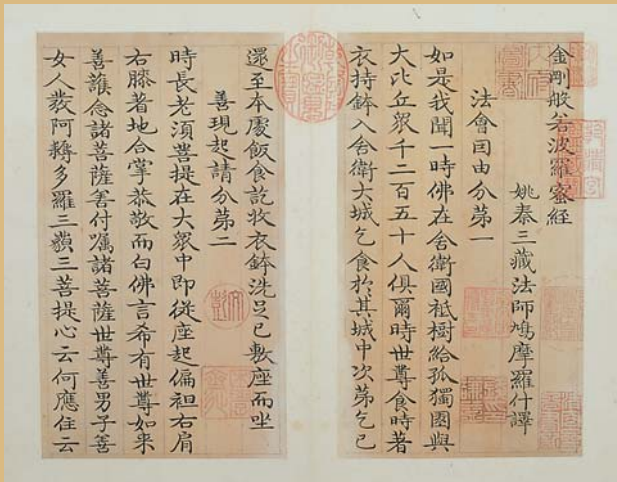 金剛般若波羅蜜經
姚秦三藏法師鳩摩羅什譯
法會因由分第一
如是我聞一時佛在舍衛國祇樹給孤獨園與
大比丘眾千二百五十人俱爾時世尊食時著
衣持鉢入舍衛大城乞食於其城中次第乞已
還至本處飯食訖收衣鉢洗足已敷座而坐
善現起請分第二
時長老須菩提在大眾中即從座起偏袒右肩
右膝著地合掌恭敬而白佛言希有世尊如來
善護念諸菩薩善付囑諸菩薩世尊善男子善
女人發阿耨多羅三藐三菩提心云何應住云